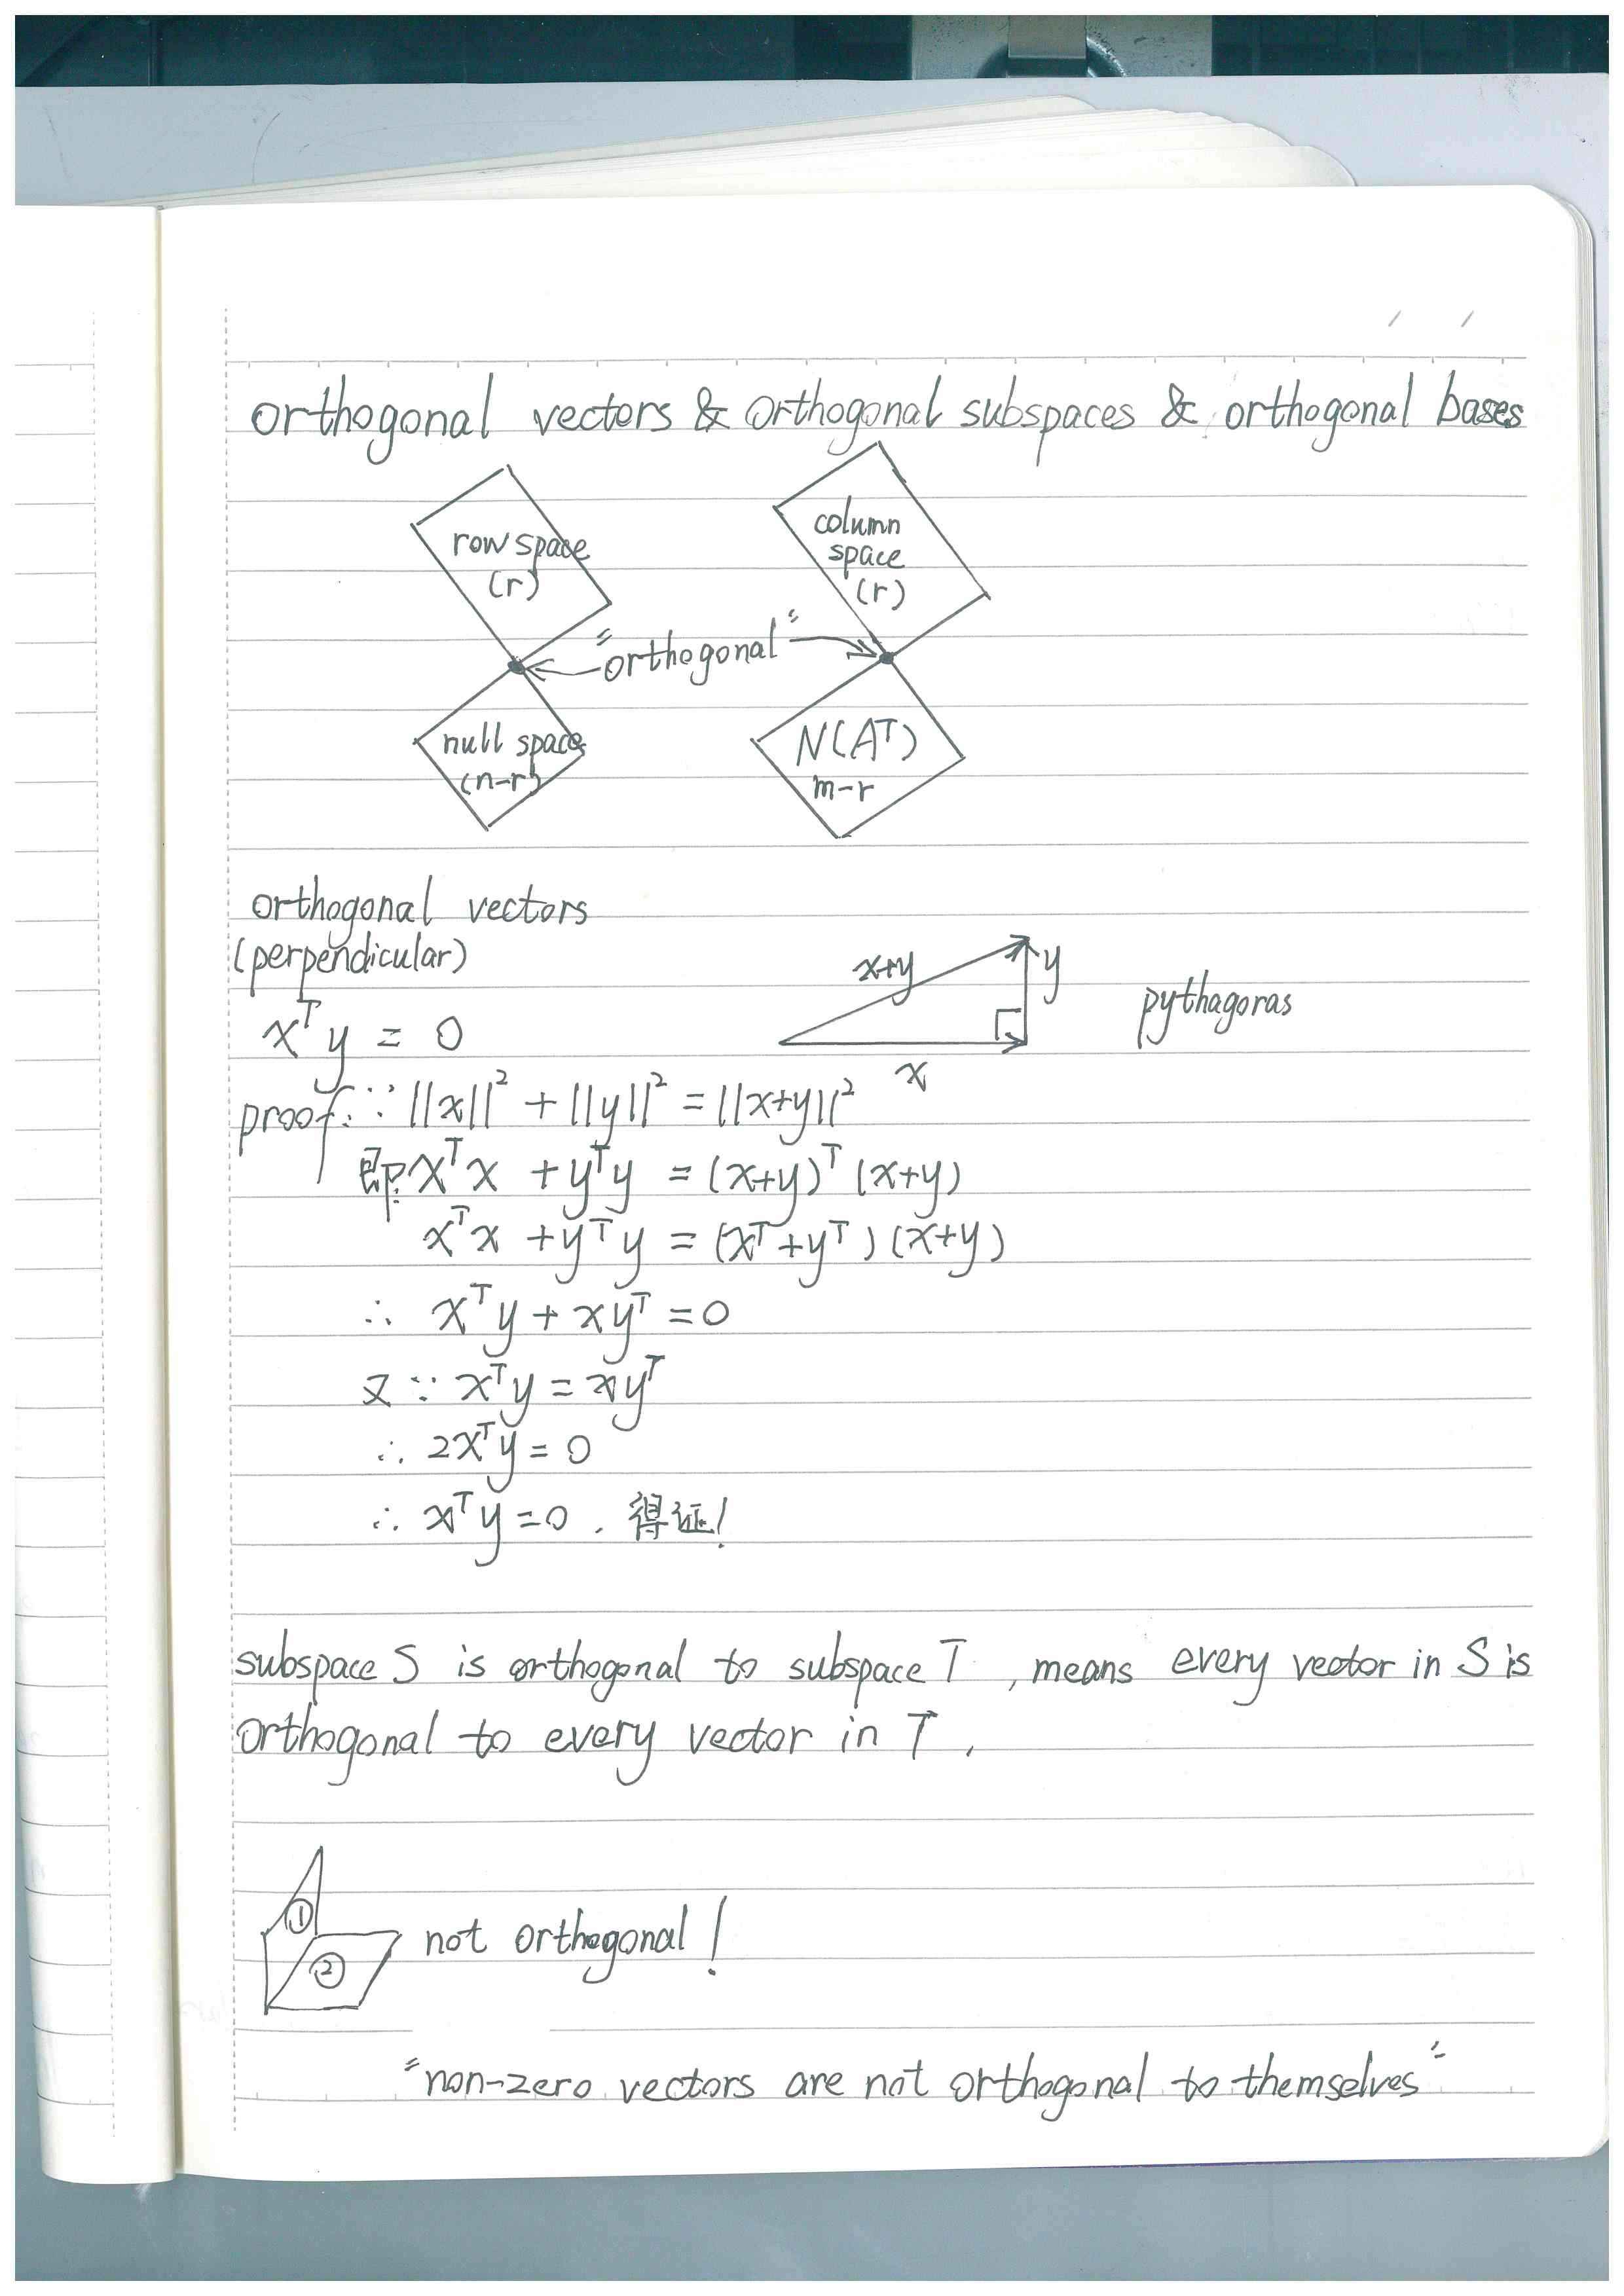 orthogonal vectors & orthogonal subspaces & orthogonal bases
row space
(r)
column
space
(r)
"orthogonal"
null space
(n-r)
N(Aᵀ)
m-r
orthogonal vectors
(perpendicular)
xᵀy = 0
x+y
y
x
pythagoras
proof: ∵ ||x||² + ||y||² = ||x+y||²
即: xᵀx + yᵀy = (x+y)ᵀ(x+y)
xᵀx + yᵀy = (xᵀ+yᵀ)(x+y)
∴ xᵀy + xyᵀ = 0
又 ∵ xᵀy = xyᵀ
∴ 2xᵀy = 0
∴ xᵀy = 0. 得证!
subspace S is orthogonal to subspace T, means every vector in S is
orthogonal to every vector in T.
①
② not orthogonal!
"non-zero vectors are not orthogonal to themselves"